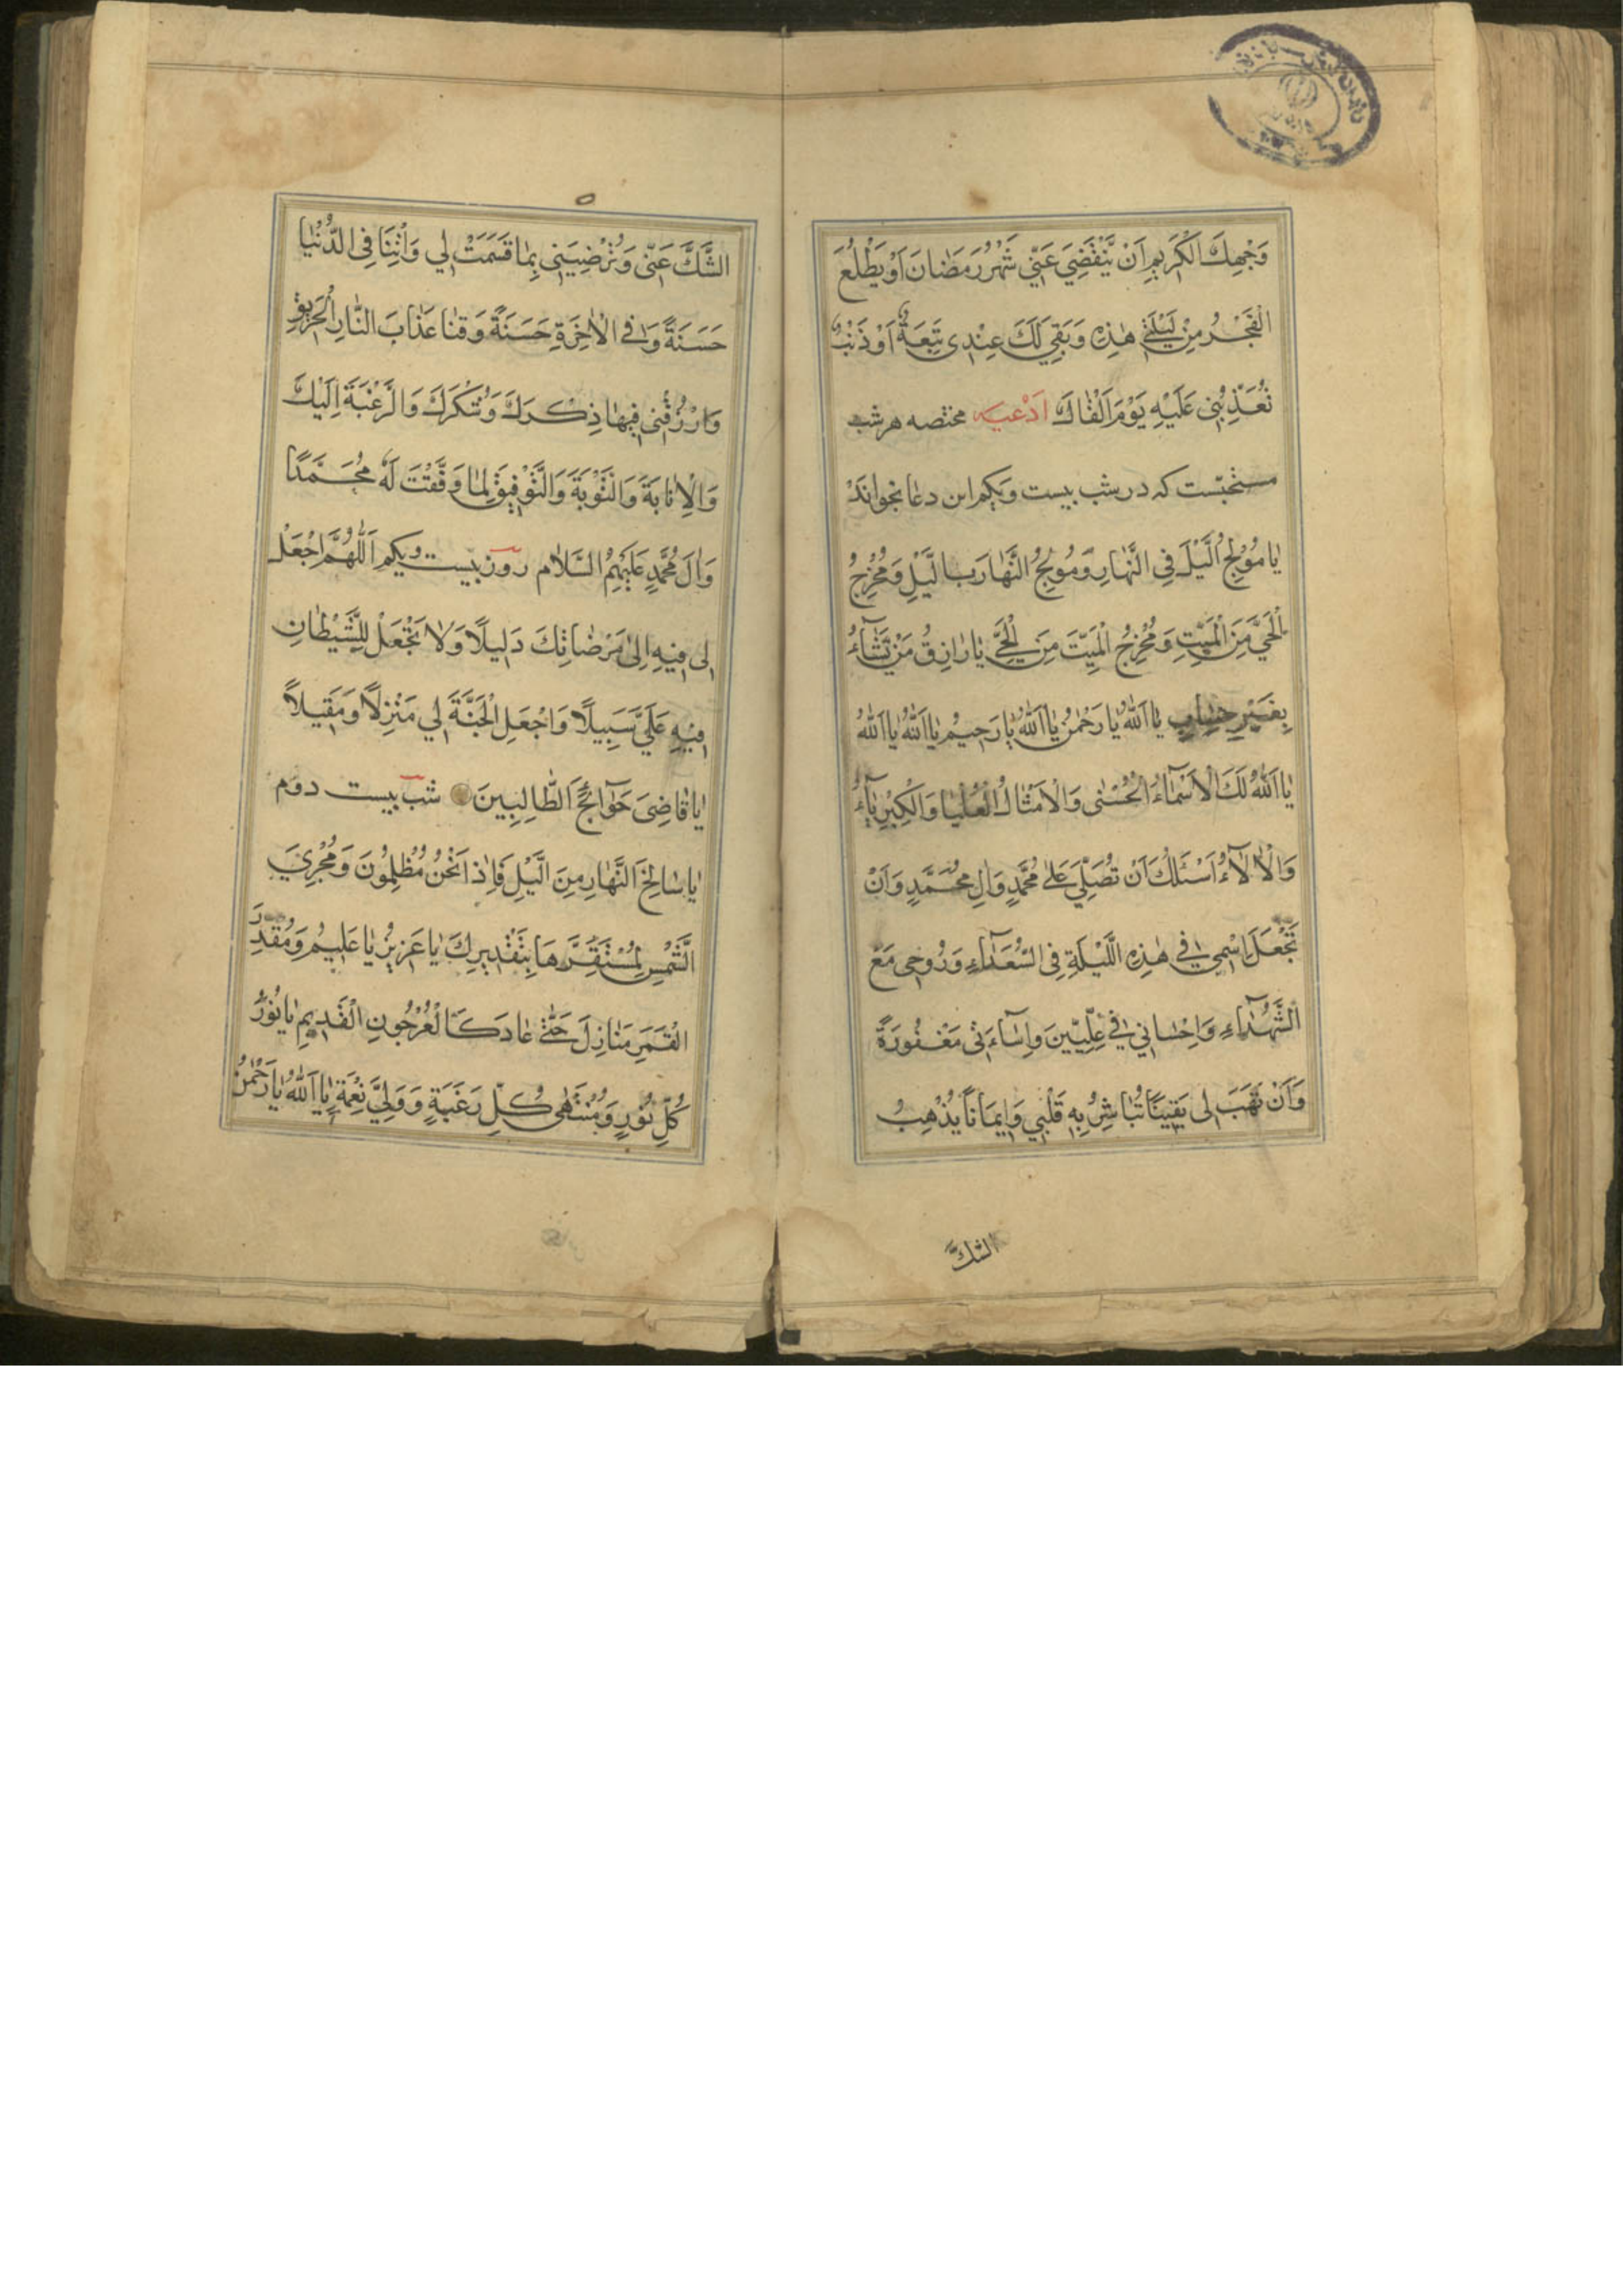 وَجْهِكَ الْكَرِيمِ اَنْ يَنْقَضِيَ عَنّي شَهْرُ رَمَضٰانَ اَوْ يَطْلُعَ
الْفَجْرُ مِنْ لَيْلَتي هٰذِهِ وَ بَقِيَ لَكَ عِنْدِي تَبِعَةٌ اَوْ ذَنْبٌ
تُعَذِّبُنِي عَلَيْهِ يَوْمَ اَلْقٰاكَ اَدْعيه مختصه هر شب
مستحبّست كه در شب بيست ويكم اين دعا بخواند
يٰا مُوْلِجَ الَّيْلَ فِي النَّهٰارِ وَمُوْلِجُ النَّهٰارَ بِالَّيْلِ وَمُخْرِجُ
الْحَيَّ مِنَ الْمَيِّتِ وَ مُخْرِجُ الْمَيِّتَ مِنَ الْحَيِّ يٰا رٰازِقُ مَنْ تَشٰآءُ
بِغَيْرِ حِسٰابٍ يٰا اَللّٰهُ يٰا رَحْمٰنُ يٰا اَللّٰهُ يٰا رَحِيْمُ يٰا اَللّٰهُ يٰا اَللّٰهُ
يٰا اَللّٰهُ لَكَ الْاَسْمٰآءُ الْحُسْنٰى وَالْاَمْثٰالُ الْعُلْيٰا وَالْكِبْرِيٰآءُ
وَالْاٰلٰآءُ اَسْئَلُكَ اَنْ تُصَلِّيَ عَلٰى مُحَمَّدٍ وَاٰلِ مُحَمَّدٍ وَاَنْ
تَجْعَلَ اسْمِي في هٰذِهِ اللَّيْلَةِ فِي السُّعَدٰآءِ وَ رُوحِي مَعَ
الشُّهَدٰآءِ وَاِحْسٰاني في عِلِّيّينَ وَاِسٰآءَتي مَغْفُورَةً
وَاَنْ تَهَبَ لي يَقِينًا تُبٰاشِرُ بِهِ قَلْبي وَاِيمَانًا يُذْهِبُ
الشكّ
الشَّكَّ عَنّي وَتُرْضِيَني بِمٰا قَسَمْتَ لي وَاٰتِنٰا فِي الدُّنْيٰا
حَسَنَةً وَ في الْاٰخِرَةِ حَسَنَةً وَقِنٰا عَذٰابَ النّٰارِ الْحَريقِ
وَارْزُقْني فيهٰا ذِكْرَكَ وَشُكْرَكَ وَالرَّغْبَةَ اِلَيْكَ
وَالْاِنٰابَةَ وَالتَّوْبَةَ وَالتَّوْفيقَ لِمٰا وَفَّقْتَ لَهُ مُحَمَّدًا
وَاٰلَ مُحَمَّدٍ عَلَيْهِمُ السَّلٰام روز بيست ويكم اَللّٰهُمَّ اجْعَلْ
لي فيهِ اِلٰى مَرْضٰاتِكَ دَليلًا وَلٰا تَجْعَلْ لِلشَّيْطٰانِ
فيهِ عَلَيَّ سَبِيلًا وَاجْعَلِ الْجَنَّةَ لي مَنْزِلًا وَمَقيلًا
يٰا قٰاضِيَ حَوٰآئِجَ الطّٰالِبِينَ شب بيست دوم
يٰا سٰالِخَ النَّهٰارِ مِنَ الَّيْلِ فَاِذٰا نَحْنُ مُظْلِمُونَ وَمُجْرِيَ
الشَّمْسِ لِمُسْتَقَرِّهَا بِتَقْديرِكَ يٰا عَزيزُ يٰا عَليمُ وَمُقَدِّرَ
الْقَمَرِ مَنٰازِلَ حَتّٰى عٰادَ كَالْعُرْجُونِ الْقَديمِ يٰا نُورَ
كُلِّ نُورٍ وَمُنْتَهٰى كُلِّ رَغْبَةٍ وَ وَلِيَّ نِعْمَةٍ يٰا اَللّٰهُ يٰا رَحْمٰنُ